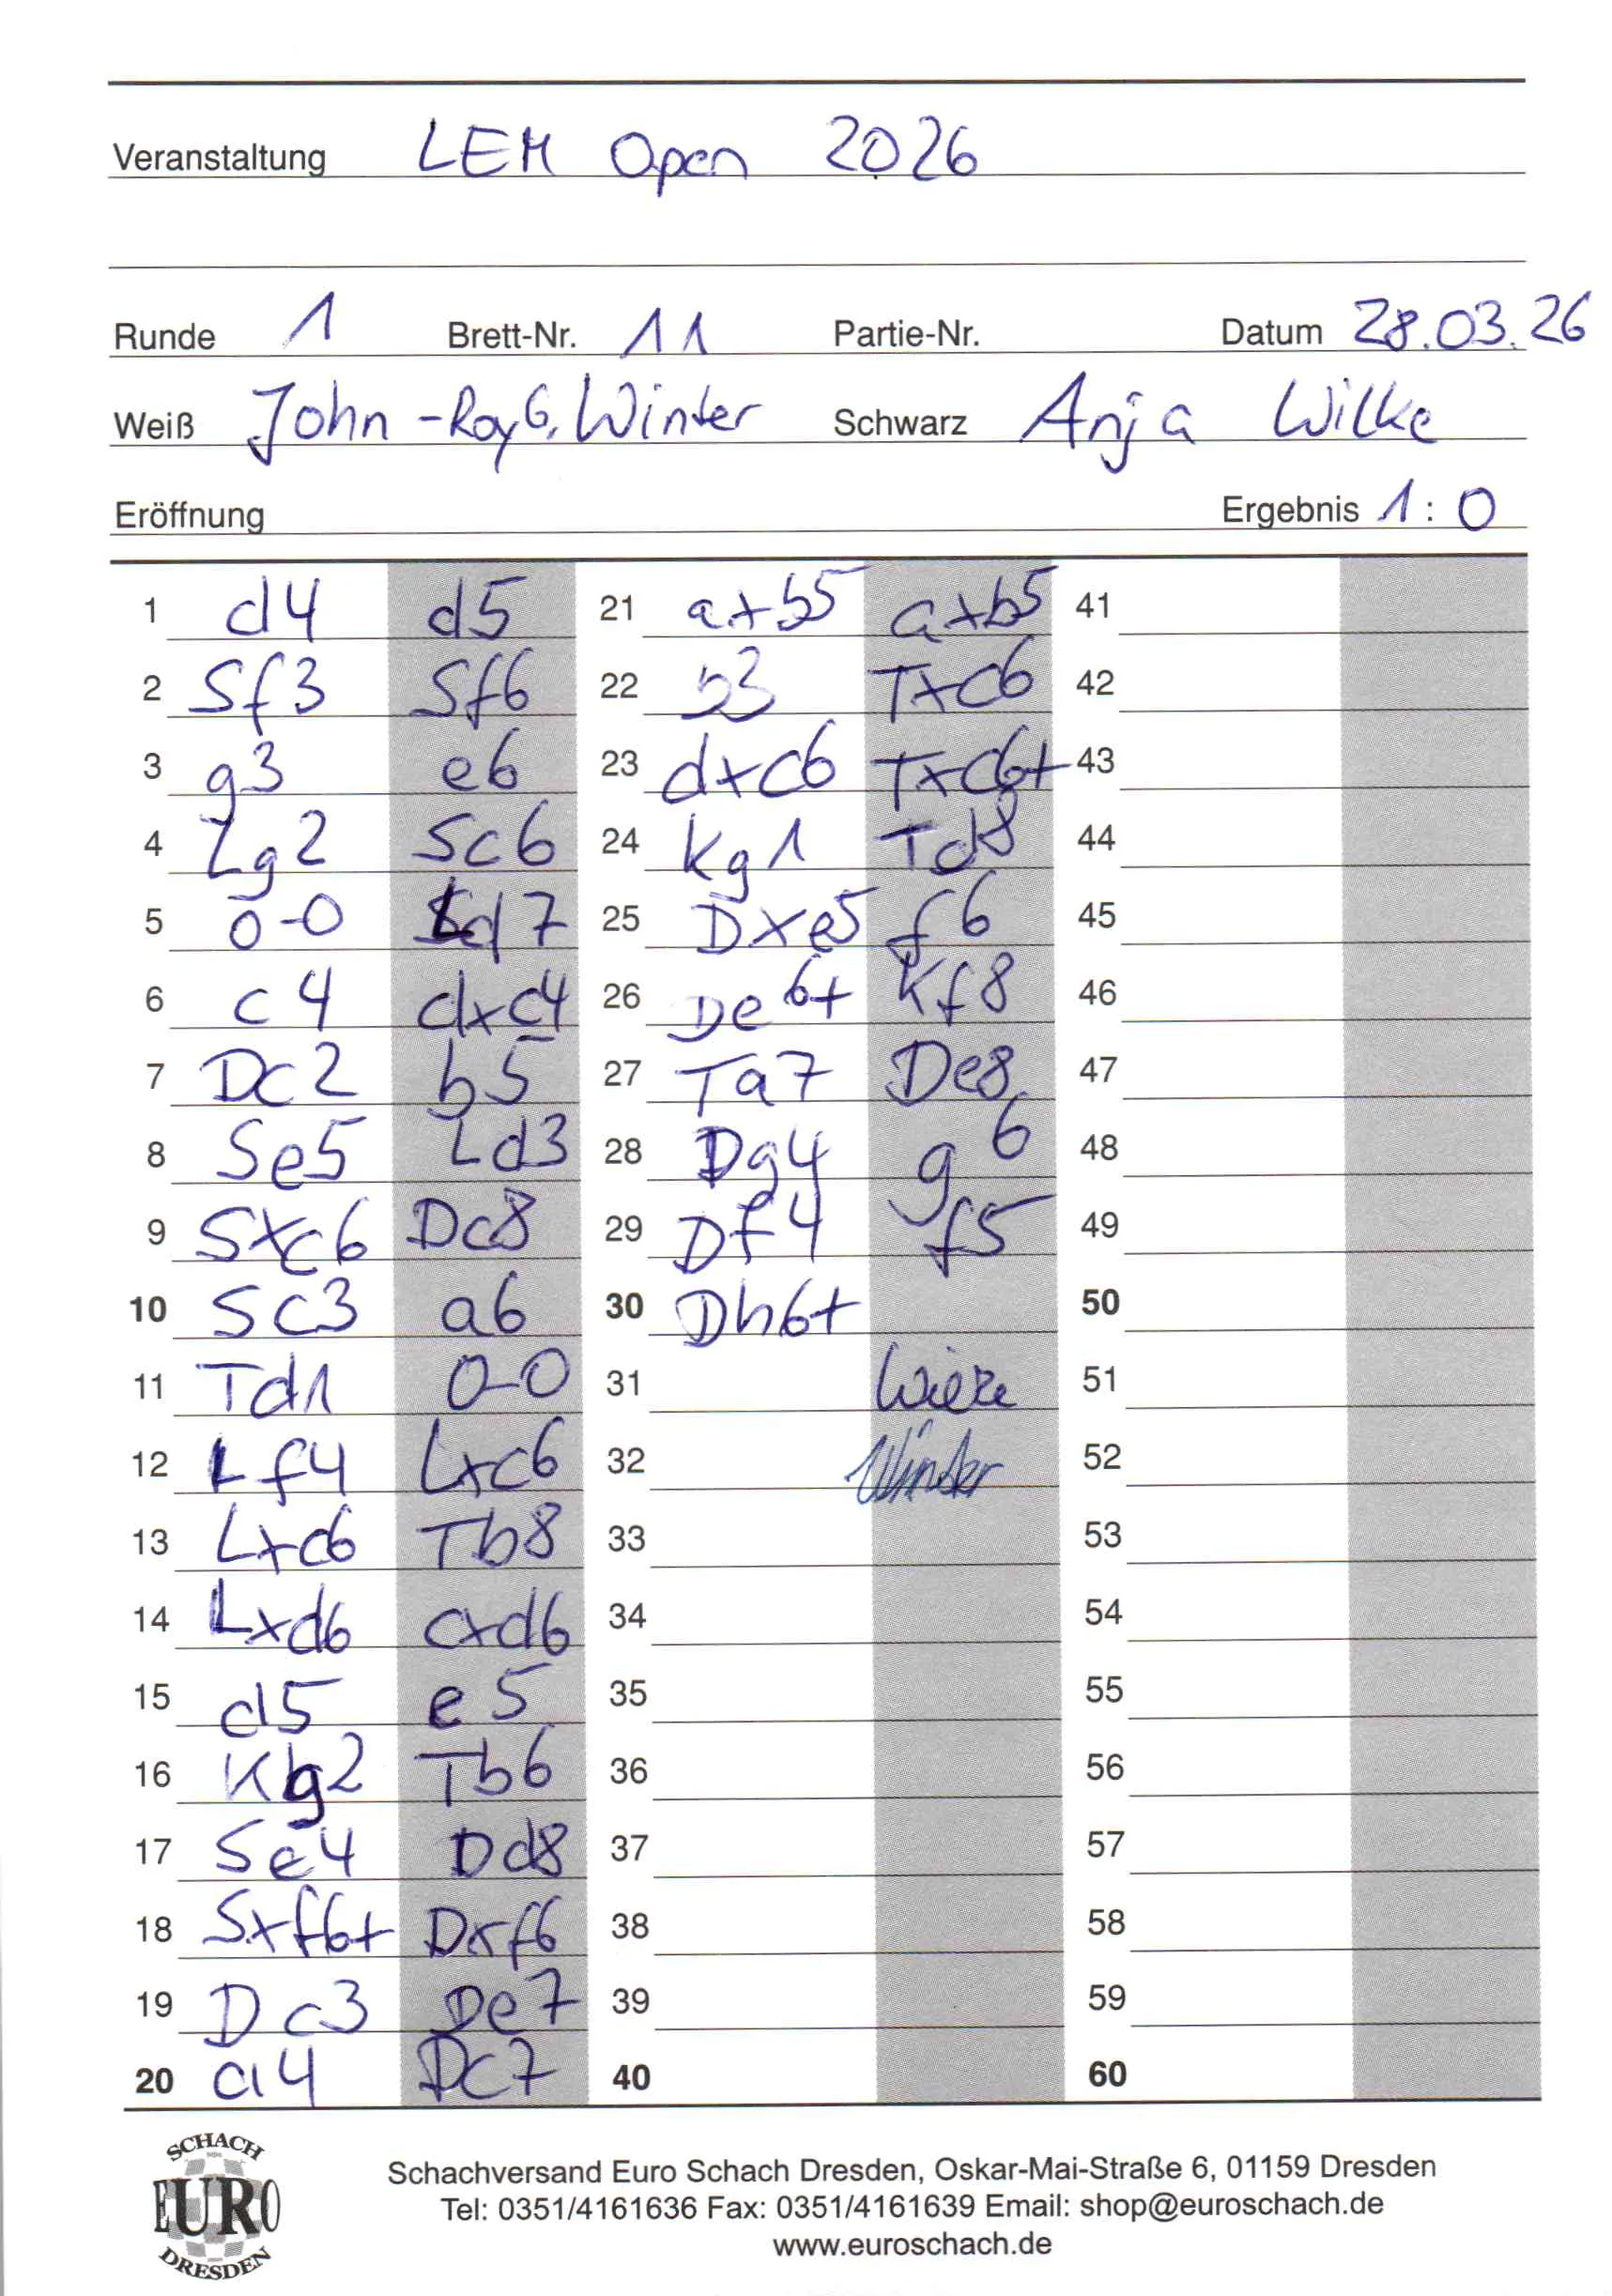 Veranstaltung LEM Open 2026
Runde 1 Brett-Nr. 11 Partie-Nr. Datum 28.03.26
Weiß John-Roy G. Winter Schwarz Anja Wilke
Eröffnung Ergebnis 1:0
1 d4 d5 21 axb5 axb5 41
2 Sf3 Sf6 22 b3 Txc6 42
3 g3 e6 23 dxc6 Txc6+ 43
4 Lg2 Sc6 24 Kg1 Tc8 44
5 0-0 Ld7 25 Dxe5 f6 45
6 c4 dxc4 26 De6+ Kf8 46
7 Dc2 b5 27 Ta7 De8 47
8 Se5 Ld3 28 Dg4 g6 48
9 Sxc6 Dc8 29 Df4 f5 49
10 Sc3 a6 30 Dh6+ 50
11 Td1 0-0 31 Wilke 51
12 Lf4 Lxc6 32 Winter 52
13 Lxc6 Tb8 33 53
14 Lxd6 cxd6 34 54
15 d5 e5 35 55
16 Kg2 Tb6 36 56
17 Se4 Dd8 37 57
18 Sxf6+ Dxf6 38 58
19 Dc3 De7 39 59
20 a4 Dc7 40 60
SCHACH
EURO
DRESDEN
Schachversand Euro Schach Dresden, Oskar-Mai-Straße 6, 01159 Dresden
Tel: 0351/4161636 Fax: 0351/4161639 Email: shop@euroschach.de
www.euroschach.de